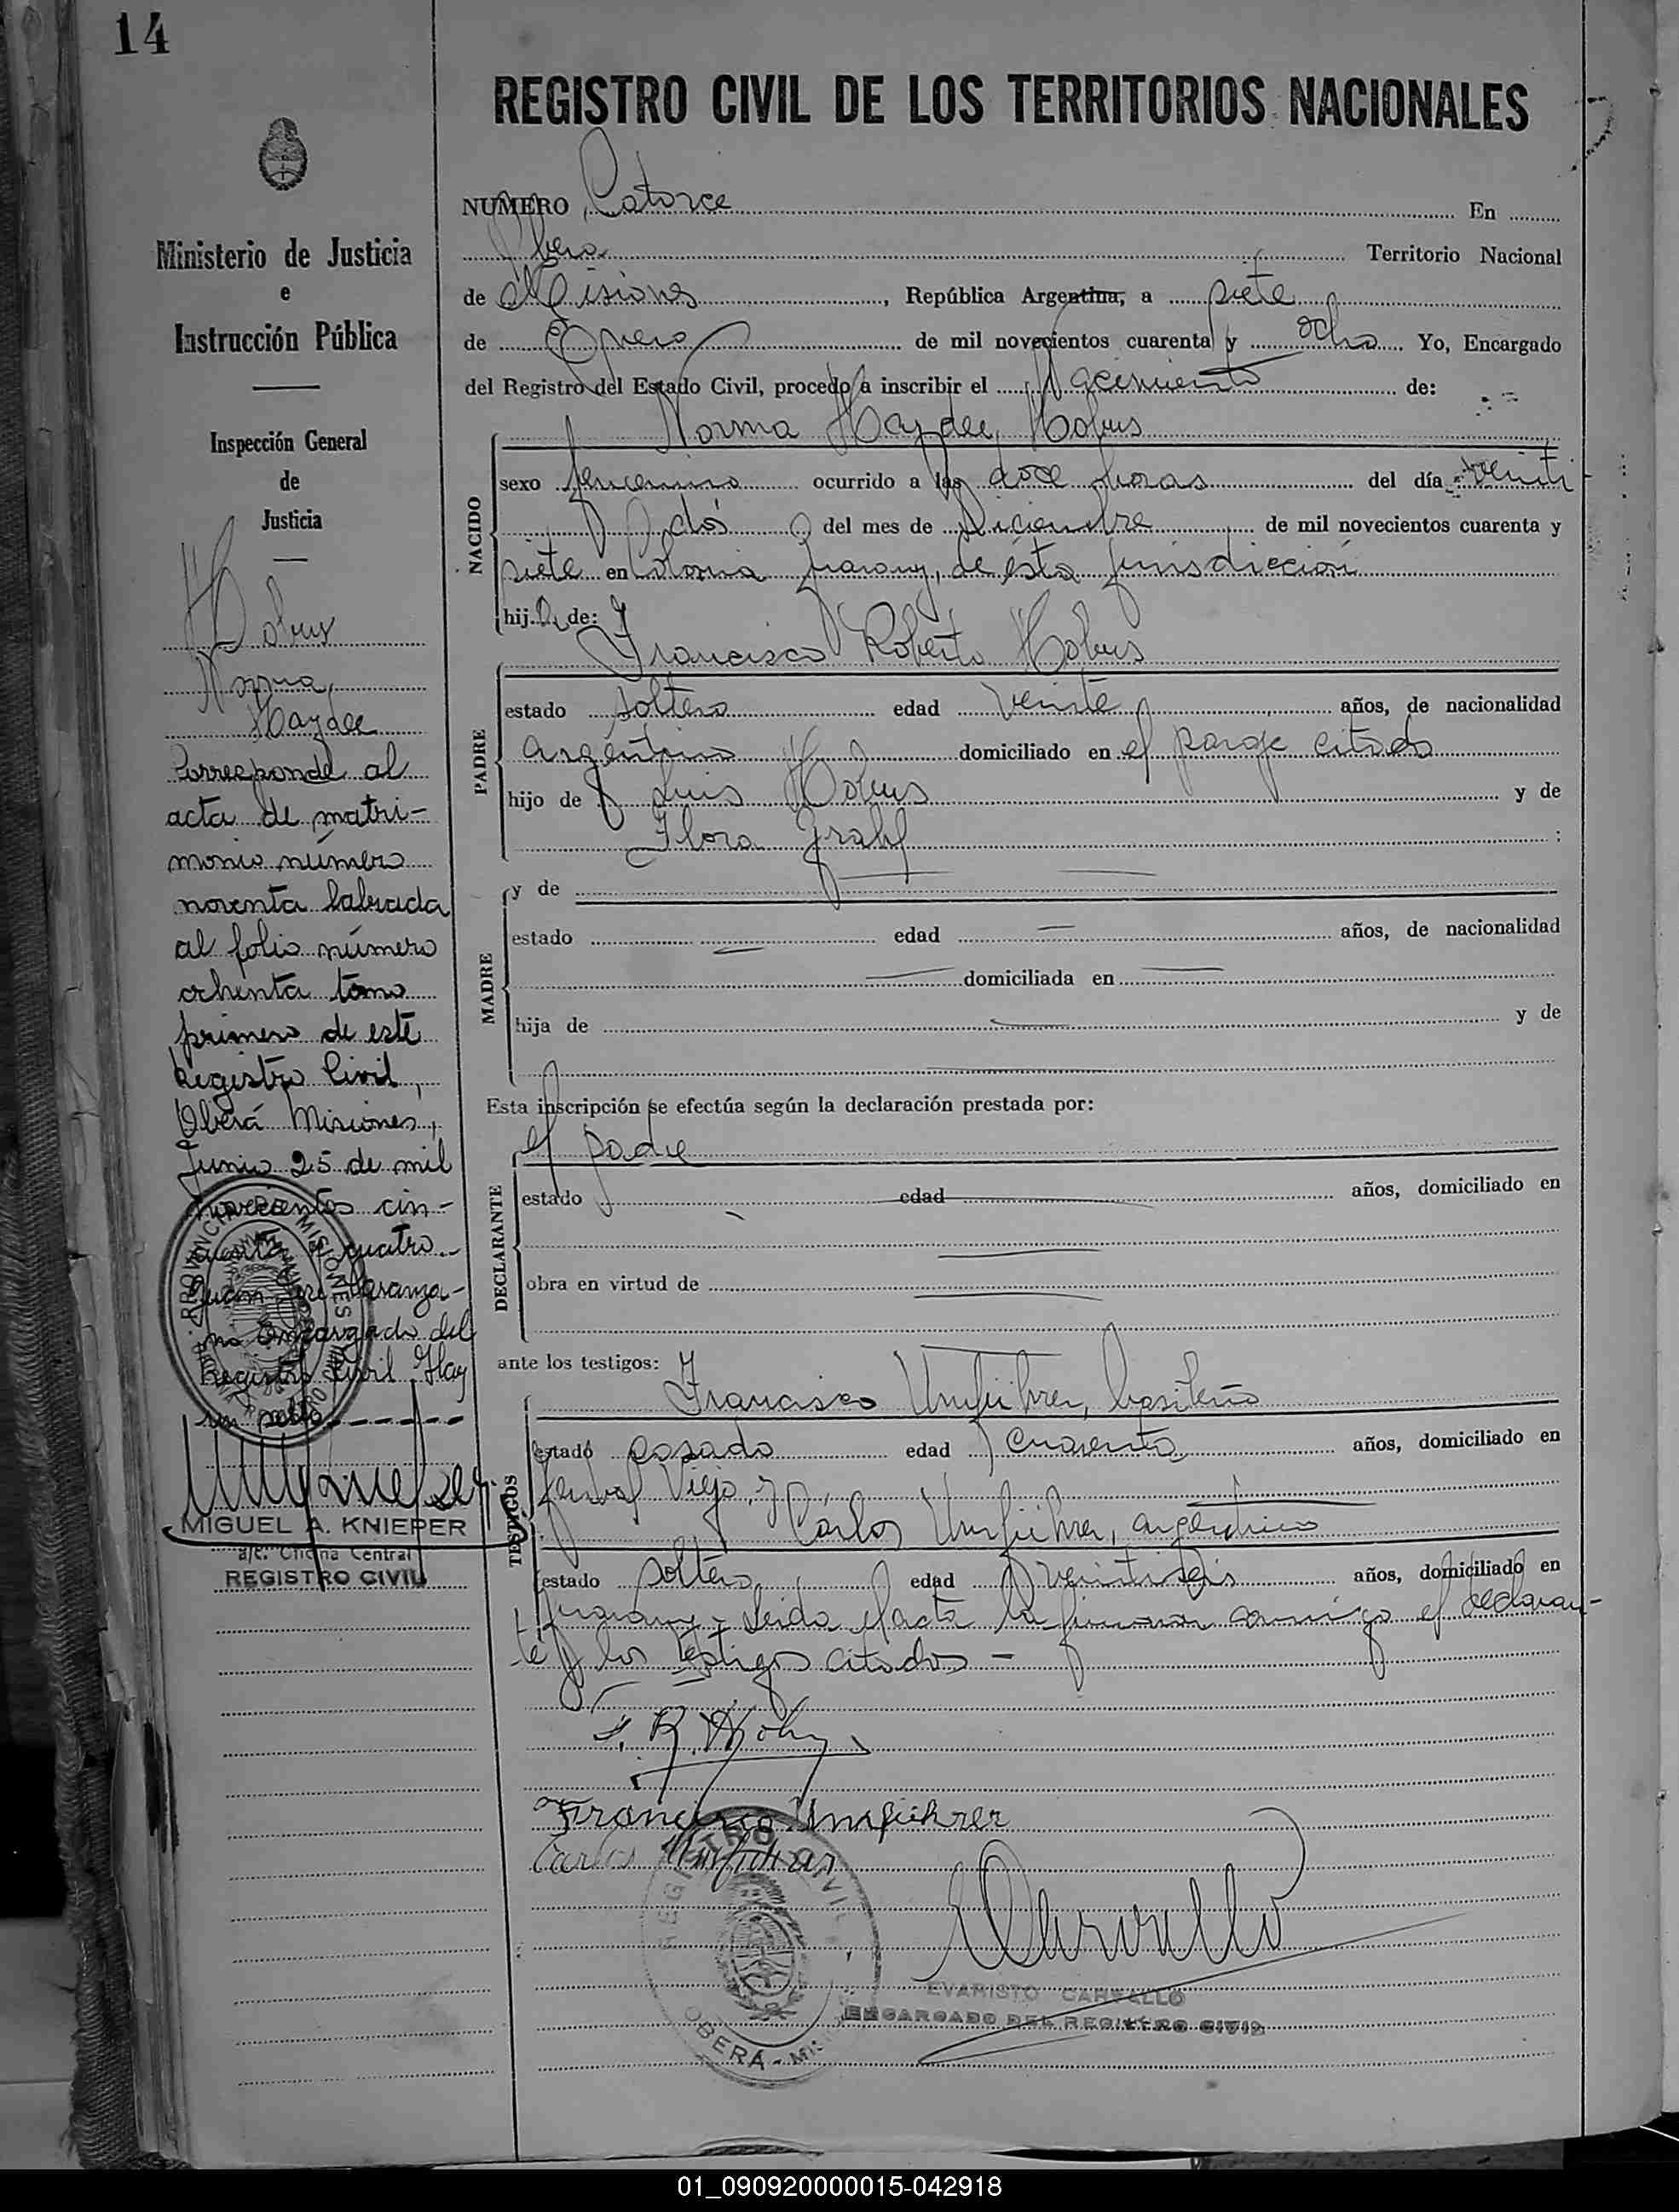 14
REGISTRO CIVIL DE LOS TERRITORIOS NACIONALES
Ministerio de Justicia
e
Instrucción Pública
Inspección General
de
Justicia
Hobus
Norma
Haydee
Corresponde al
acta de matri-
monio número
noventa labrada
al folio número
ochenta tomo
primero de este
Registro Civil,
Oberá Misiones,
Junio 25 de mil
novecientos cin-
cuenta y cuatro.-
Juan
no Encargado del
Registro Civil. Hay
un sello
PROVINCIA DE MISIONES
MIGUEL A. KNIEPER
a/c. Oficina Central
REGISTRO CIVIL
NUMERO Catorce En
Oberá Territorio Nacional
de Misiones, República Argentina, a siete
de Enero de mil novecientos cuarenta y ocho Yo, Encargado
del Registro del Estado Civil, procedo a inscribir el Nacimiento de:
Norma Haydee Hobus
NACIDO
sexo femenino ocurrido a las doce horas del día veinti
dós del mes de Diciembre de mil novecientos cuarenta y
siete en Colonia Guarany, de ésta jurisdicción
hija de:
Francisco Roberto Hobus
PADRE
estado soltero edad veinte años, de nacionalidad
argentino domiciliado en el paraje citado
hijo de Luis Hobus y de
Flora Grahl ;
MADRE
y de
estado edad años, de nacionalidad
domiciliada en
hija de y de
Esta inscripción se efectúa según la declaración prestada por:
el padre
DECLARANTE
estado edad años, domiciliado en
obra en virtud de
ante los testigos:
Francisco Umführer, brasileño
TESTIGOS
estado casado edad cuarenta años, domiciliado en
Yerbal Viejo, y Carlos Umführer, argentino
estado soltero edad veintiseis años, domiciliado en
Guarany.- Leida el acta la firman conmigo el declaran-
te y los testigos citados -
F. R. Hobus
Francisco Umführer
Carlos Umführer
REGISTRO CIVIL
OBERÁ - MIS
EVARISTO CARVALLO
ENCARGADO DEL REGISTRO CIVIL
01_090920000015-042918